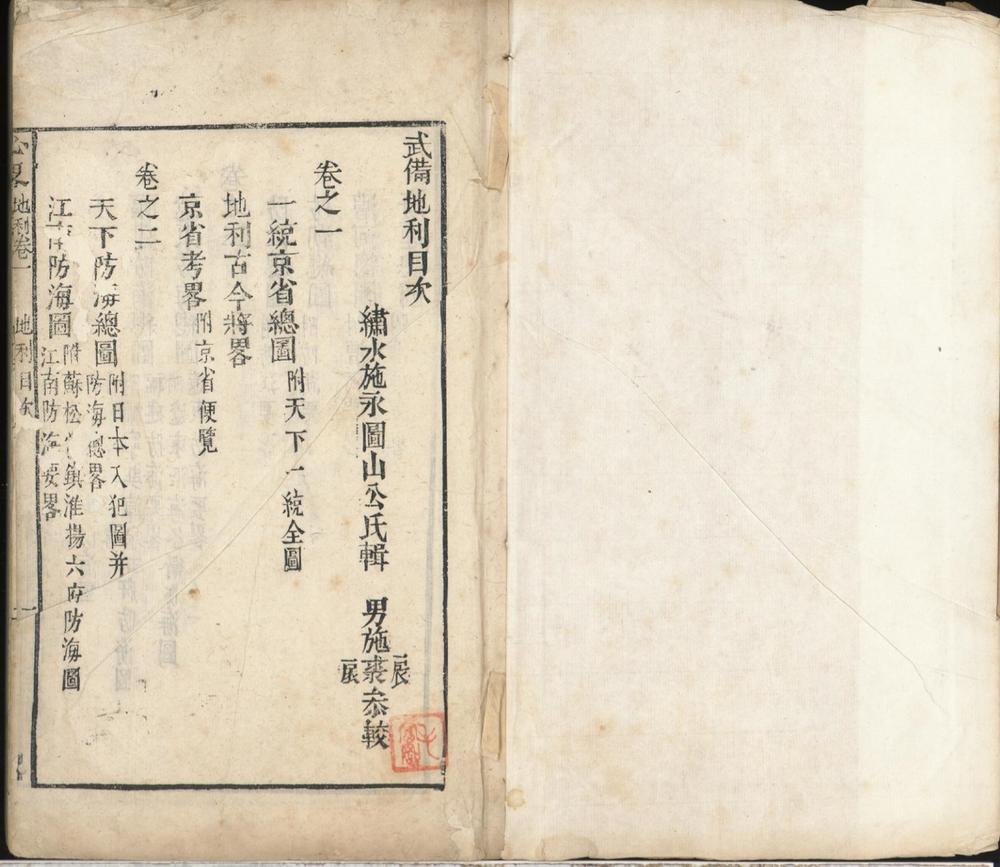 武備地利目次
繡水施永圖山公氏輯　男施裘叅較
卷之一
一統京省總圖附天下一統全圖
地利古今將畧
京省考畧附京省便覽
卷之二
天下防海總圖附日本入犯圖并防海總畧
防海圖附蘇松鎮淮揚六府防海圖江南防海要畧
地利卷一　地利目次　一